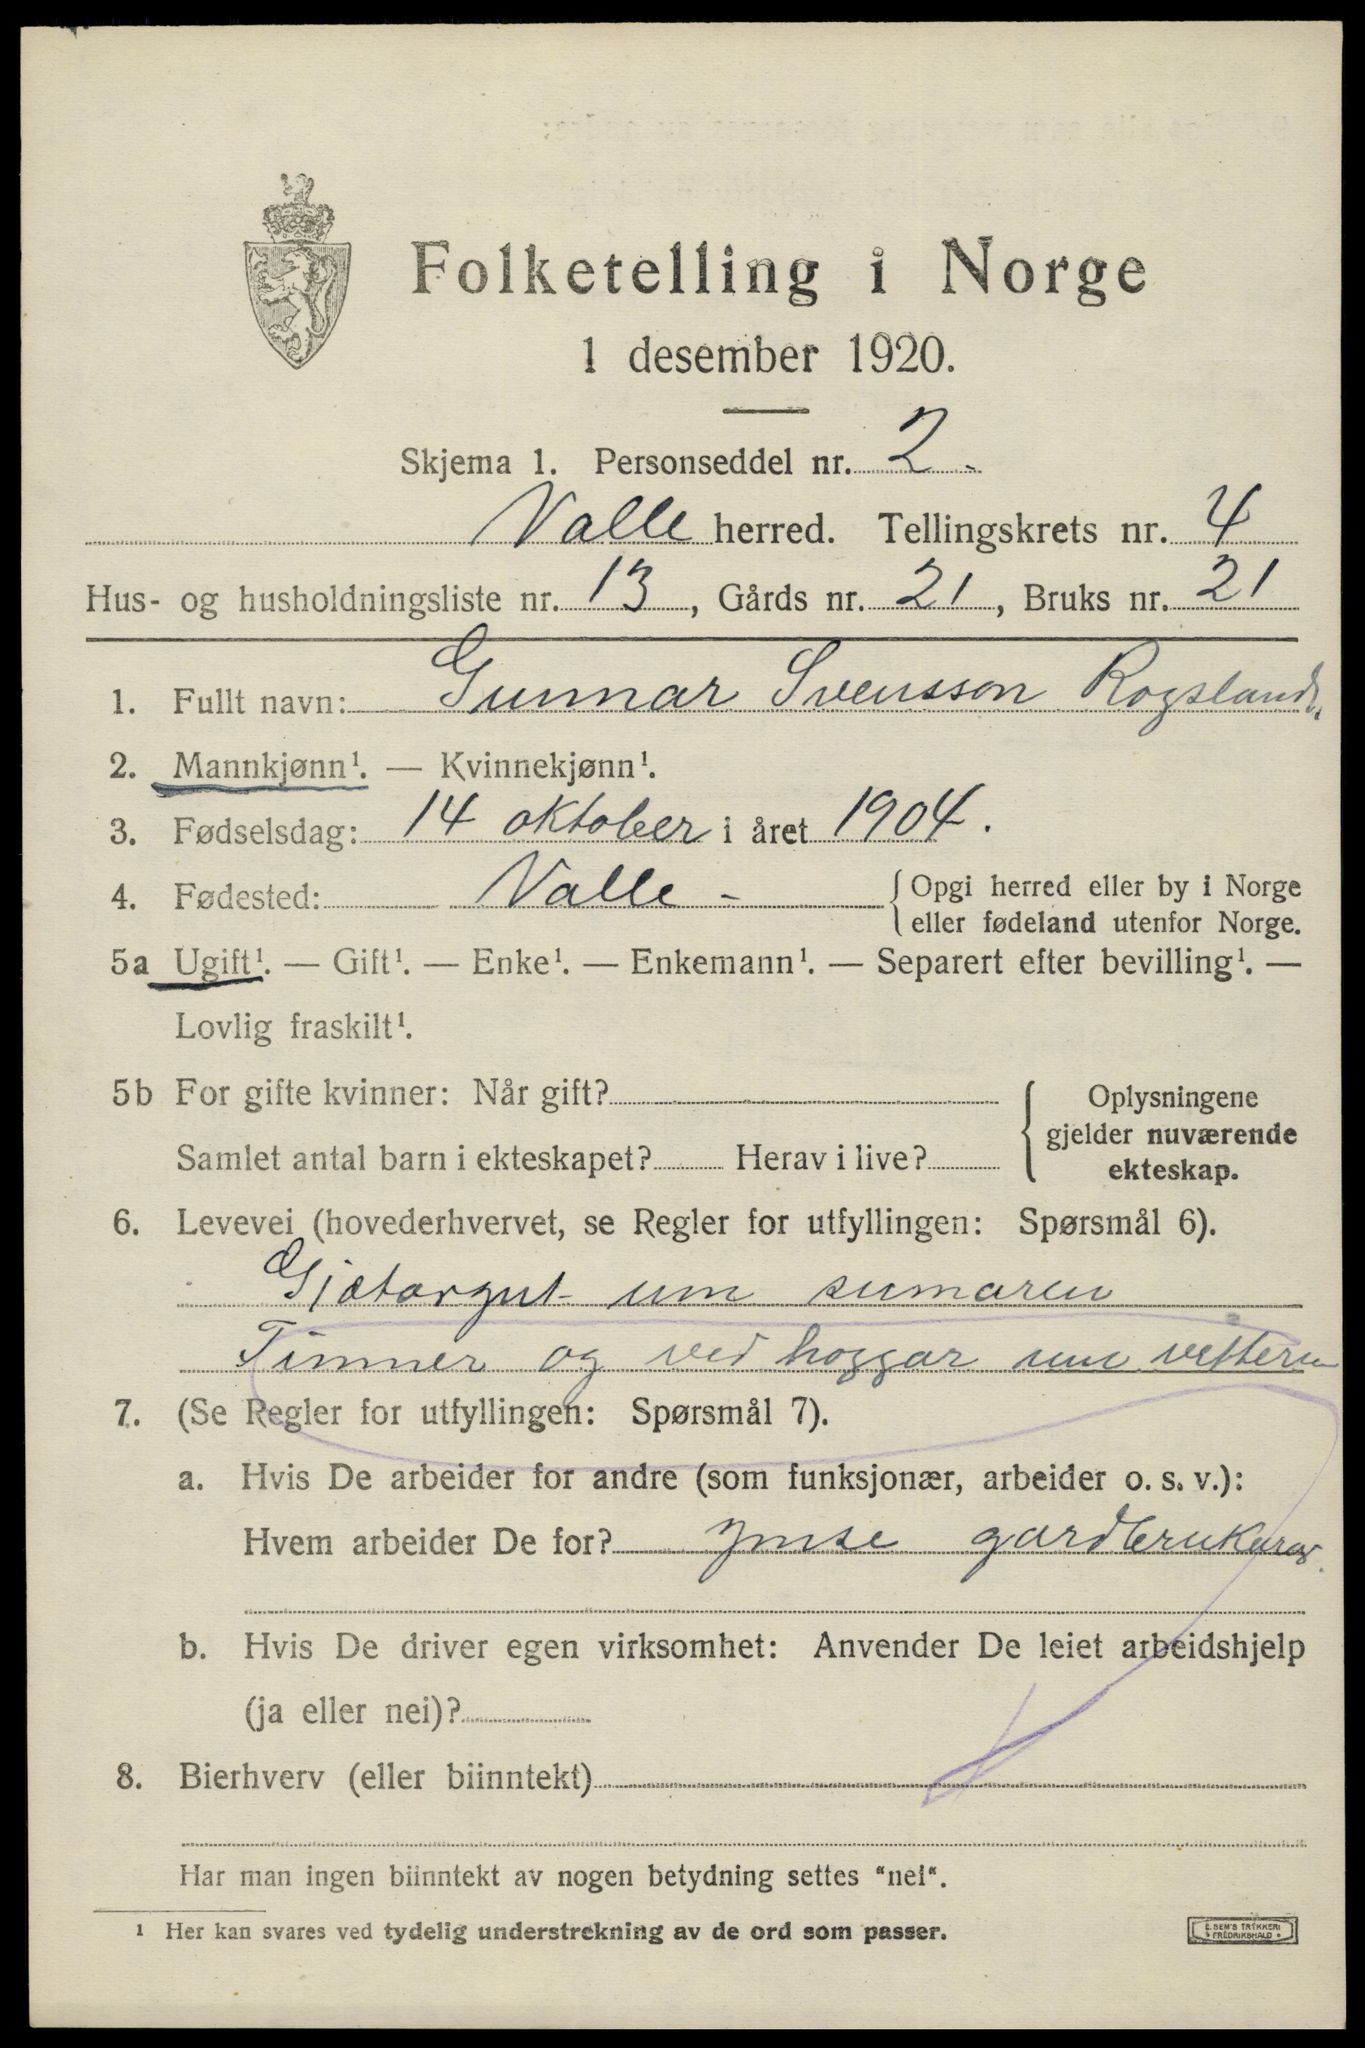 Folketelling i Norge
1 desember 1920.
Skjema 1. Personseddel nr. 2.
Valle herred. Tellingskrets nr. 4
Hus- og husholdningsliste nr. 13, Gårds nr. 21, Bruks nr. 21
1. Fullt navn: Gunnar Svensson Rogsland.
2. Mannkjønn¹. — Kvinnekjønn¹.
3. Fødselsdag: 14 oktober i året 1904.
4. Fødested: Valle - { Opgi herred eller by i Norge
eller fødeland utenfor Norge.
5a Ugift¹. — Gift¹. — Enke¹. — Enkemann¹. — Separert efter bevilling¹. —
Lovlig fraskilt¹.
5b For gifte kvinner: Når gift? { Oplysningene
gjelder nuværende
Samlet antal barn i ekteskapet? Herav i live? ekteskap.
6. Levevei (hovederhvervet, se Regler for utfyllingen: Spørsmål 6).
Gjætargut um sumaren
Timmer og ved hoggar um vetteren
7. (Se Regler for utfyllingen: Spørsmål 7).
a. Hvis De arbeider for andre (som funksjonær, arbeider o. s. v.):
Hvem arbeider De for? ymse gardbrukarar.
b. Hvis De driver egen virksomhet: Anvender De leiet arbeidshjelp
(ja eller nei)?
8. Bierhverv (eller biinntekt)
Har man ingen biinntekt av nogen betydning settes "nei".
¹ Her kan svares ved tydelig understrekning av de ord som passer.
E. SEM'S TRYKKERI
FREDRIKSHALD